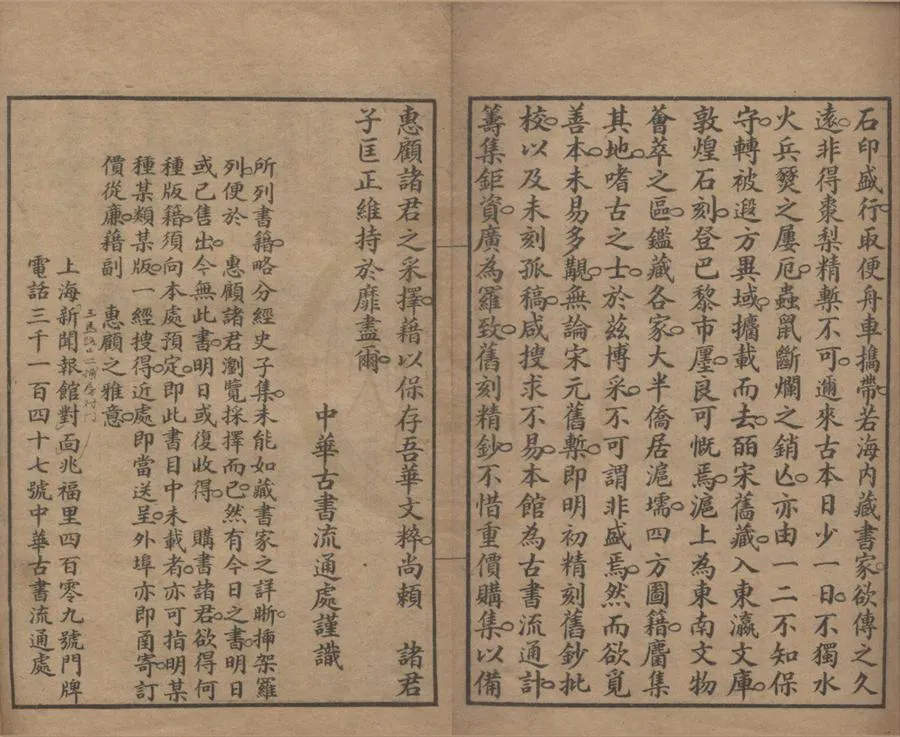 石印盛行。取便舟車攜帶。若海內藏書家。欲傳之久
遠。非得棗梨精槧不可。邇來古本日少一日。不獨水
火兵燹之屢厄。蟲鼠斷爛之銷亾。亦由一二不知保
守。轉被遐方異域。攟載而去。皕宋舊藏。入東瀛文庫。
敦煌石刻。登巴黎市廛。良可慨焉。滬上為東南文物
薈萃之區。鑑藏各家。大半僑居滬壖。四方圖籍。麕集
其地。嗜古之士。於茲博采。不可謂非盛焉。然而欲覓
善本。未易多覯。無論宋元舊槧。即明初精刻舊鈔批
校。以及未刻孤稿。咸搜求不易。本館為古書流通計。
籌集鉅資。廣為羅致。舊刻精鈔。不惜重價購集。以備
惠顧諸君之采擇。藉以保存吾華文粹。尚賴　諸君
子匡正維持於靡盡爾。
中華古書流通處謹識
所列書籍。略分經史子集。未能如藏書家之詳晰。揷架羅
列。便於　惠顧諸君瀏覽採擇而已。然有今日之書。明日
或已售出。今無此書。明日或復收得。　購書諸君。欲得何
種版籍。須向本處預定。即此書目中未載者。亦可指明某
種某類某版。一經搜得。近處即當送呈。外埠亦即函寄。訂
價從廉。藉副　惠顧之雅意
上海新聞報館對面兆福里四百零九號門牌
電話三千一百四十七號中華古書流通處